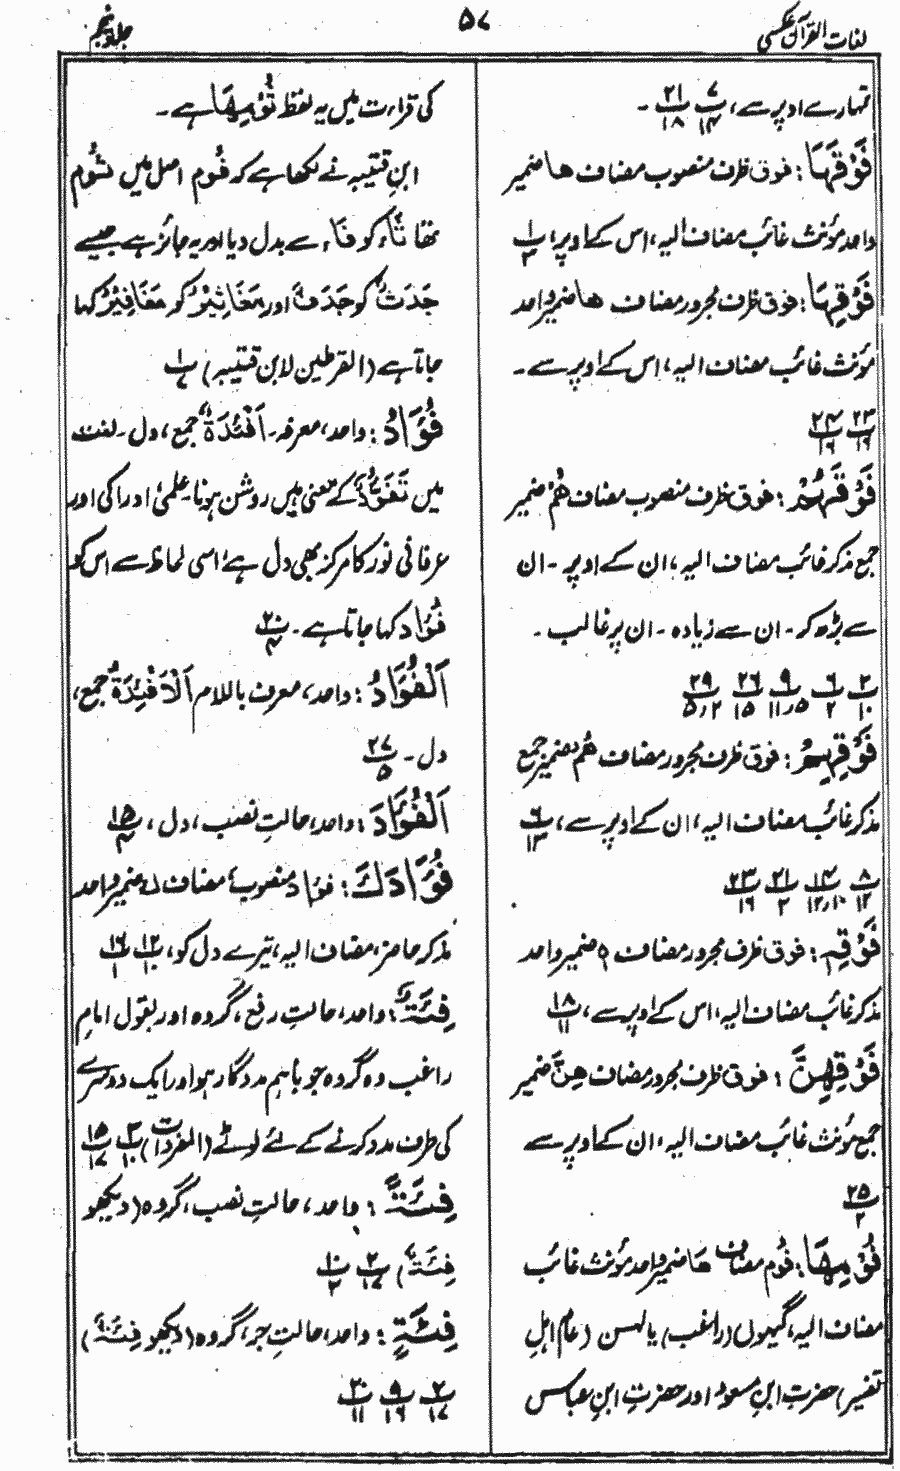 لغات القرآن عکسی
۵۷
جلد پنجم
تمہارے اوپر سے، ۷/۱۴ ۲۱/۱۸ ۔
فَوْقَهَا: فوق ظرف منصوب مضاف ھا ضمیر
واحد مؤنث غائب مضاف الیہ، اس کے اوپر، ۱/۳
فَوْقِهَا: فوق ظرف مجرور مضاف ھا ضمیر واحد
مؤنث غائب مضاف الیہ، اس کے اوپر سے۔
۲۳/۱۹ ۲۴/۱۶
فَوْقَهُمْ: فوق ظرف منصوب مضاف ھُمْ ضمیر
جمع مذکر غائب مضاف الیہ، ان کے اوپر ۔ ان
سے بڑھ کر ۔ ان سے زیادہ ۔ ان پر غالب ۔
۲/۱۰ ۶/۲ ۹/۱۱٫۵ ۲۶/۱۵ ۲۹/۵٫۲
فَوْقِهِمْ: فوق ظرف مجرور مضاف ھُم ضمیر جمع
مذکر غائب مضاف الیہ، ان کے اوپر سے، ۶/۱۳
۸/۱۲ ۱۴/۱۲٫۱۰ ۲۱/۲ ۲۳/۱۶
فَوْقِهٖ: فوق ظرف مجرور مضاف ہٖ ضمیر واحد
مذکر غائب مضاف الیہ، اس کے اوپر سے، ۱۸/۱۱
فَوْقِهِنَّ: فوق ظرف مجرور مضاف ھِنَّ ضمیر
جمع مؤنث غائب مضاف الیہ، ان کے اوپر سے
۲۵/۲
فُوْمِهَا: فُوم مضاف ھَا ضمیر واحد مؤنث غائب
مضاف الیہ، گیہوں (راغب) یا لہسن (عام اہلِ
تفسیر) حضرت ابنِ مسعودؓ اور حضرتِ ابنِ عباس
کی قراءت میں یہ لفظ ثُوْمِهَا ہے۔
ابنِ قتیبہ نے لکھا ہے کہ فُوم اصل میں ثُوم
تھا ثَاء کو فَاء سے بدل دیا اور یہ جائز ہے جیسے
جَدَثٌ کو جَدَفٌ اور مَغَاثِیْرُ کو مَغَافِیْرُ کہا
جاتا ہے (القرطین لابن قتیبہ) ۱/۷
فُؤَادُ: واحد، معرفہ۔ اَفْئِدَةٌ جمع، دل۔ لغت
میں تَفَؤُّدٌ کے معنی ہیں روشن ہونا۔ علمی، ادراکی اور
عرفانی نور کا مرکز بھی دل ہے، اسی لحاظ سے اس کو
فُؤَاد کہا جاتا ہے۔ ۲۰/۴
اَلْفُؤَادُ: واحد، معرف باللام اَلْاَفْئِدَةُ جمع،
دل۔ ۲۷/۵
اَلْفُؤَادَ: واحد، حالتِ نصب، دل، ۱۵/۴
فُؤَادَكَ: فؤاد منصوب، مضاف ك ضمیر واحد
مذکر حاضر، مضاف الیہ، تیرے دل کو، ۱۲/۱۰ ۱۹/۱
فِئَةٌ: واحد، حالتِ رفع، گروہ اور بقول امامِ
راغب وہ گروہ جو باہم مددگار ہو اور ایک دوسرے
کی طرف مدد کرنے کے لئے لوٹے (المفردات) ۳/۱۰ ۱۵/۱۷
فِئَةً: واحد، حالتِ نصب، گروہ (دیکھو
فِئَةٌ) ۲/۱۷ ۱۰/۲
فِئَةٍ: واحد، حالتِ جر، گروہ (دیکھو فِئَةٌ)
۲/۱۷ ۹/۱۶ ۳۰/۱۱